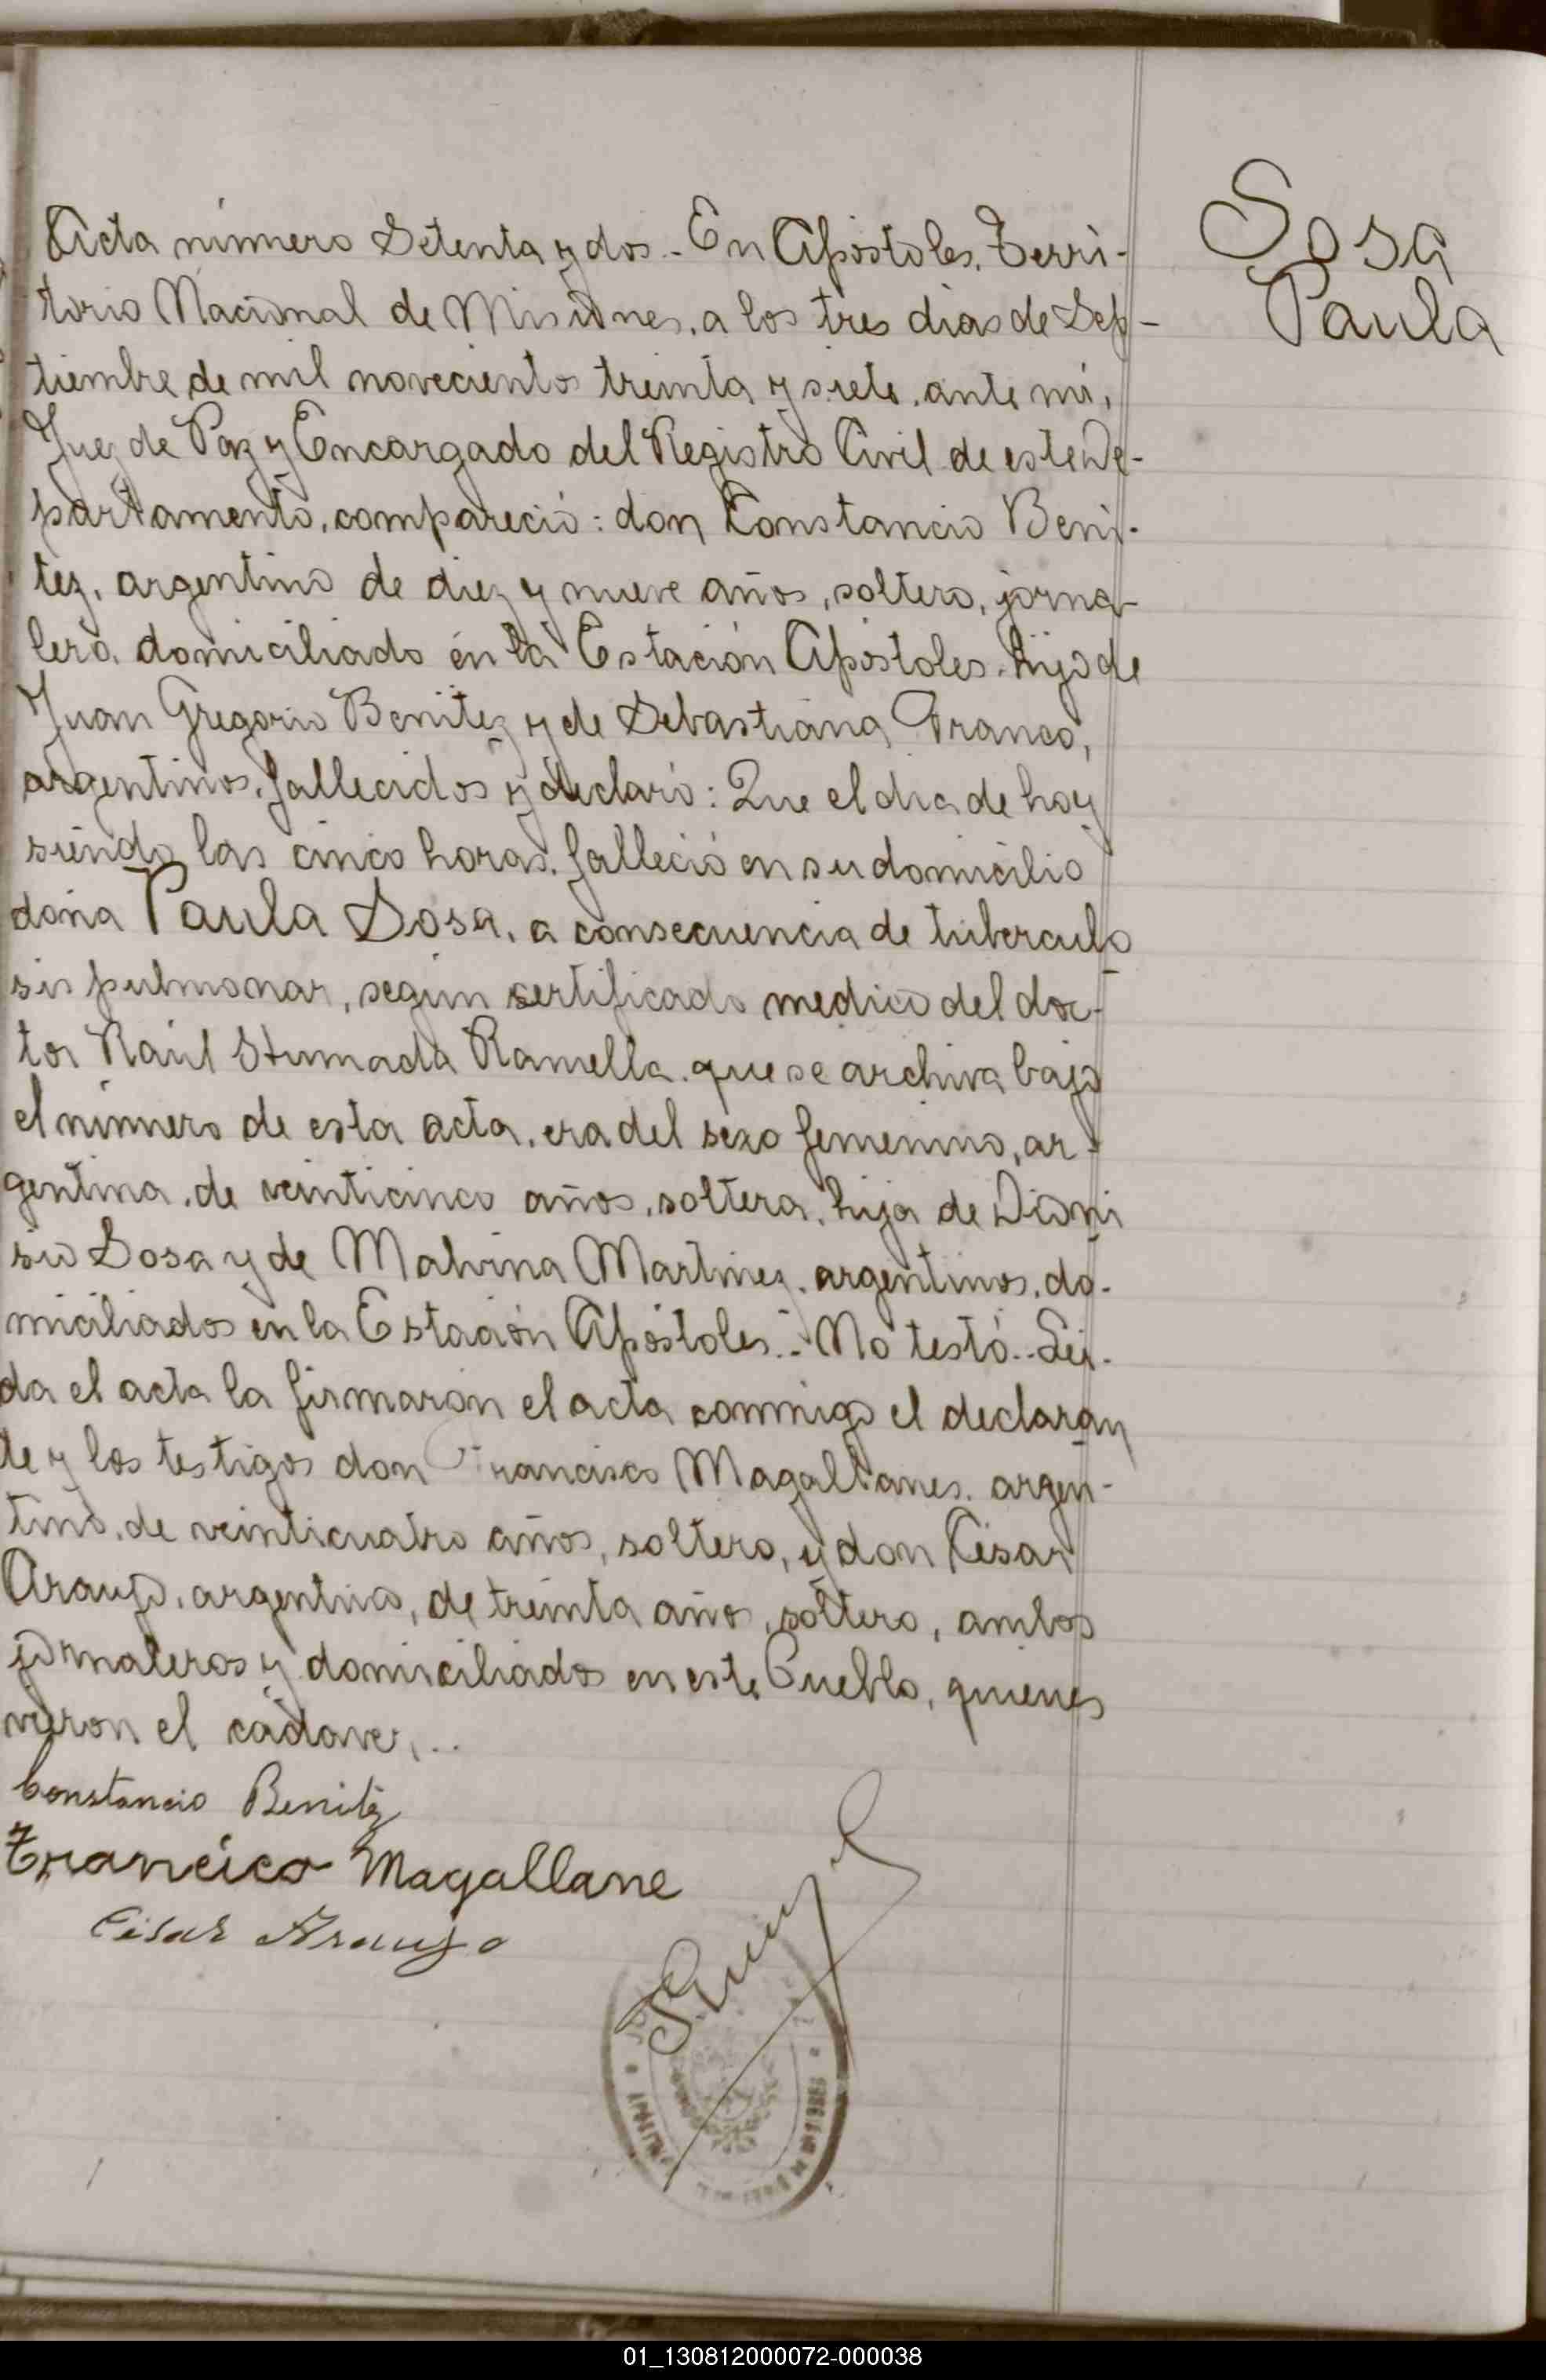 Sosa
Paula
Acta número Setenta y dos.- En Apóstoles, Terri-
torio Nacional de Misiones, a los tres dias de Sep-
tiembre de mil novecientos treinta y siete, ante mi,
Juez de Paz y Encargado del Registro Civil de este De-
partamento, compareció: don Constancio Beni-
tez, argentino de diez y nueve años, soltero, jorna-
lero, domiciliado en la Estación Apóstoles, hijo de
Juan Gregorio Benitez y de Sebastiana Franco,
argentinos, fallecidos y declaró: Que el dia de hoy
siendo las cinco horas, falleció en su domicilio
doña Paula Sosa, a consecuencia de tuberculo
sis pulmonar, según sertificado medico del doc-
tor Raúl Ramella, que se archiva bajo
el número de esta acta, era del sexo femenino, ar-
gentina, de veinticinco años, soltera, hija de Dioni
sio Sosa y de Malvina Martinez, argentinos, do-
miciliados en la Estación Apóstoles.- No testó.- Lei-
da el acta la firmaron el acta conmigo el declaran
te y los testigos don Francisco Magallanes, argen-
tino, de veinticuatro años, soltero, y don César
Araujo, argentino, de treinta años, soltero, ambos
jornaleros y domiciliados en este Pueblo, quienes
vieron el cádaver,..
Constancio Benitez
Francisco Magallane
Cesar Araujo
01_130812000072-000038